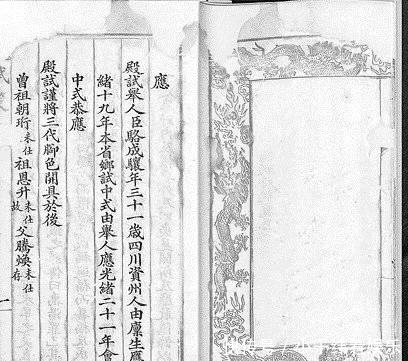 應
殿試舉人臣駱成驤年三十一歲四川資州人由廩生應
緒十九年本省鄉試中式由舉人應光緒二十一年會
中式恭應
殿試謹將三代腳色開具於後
曾祖朝珩未仕故祖恩升未仕父騰煥未仕存
一